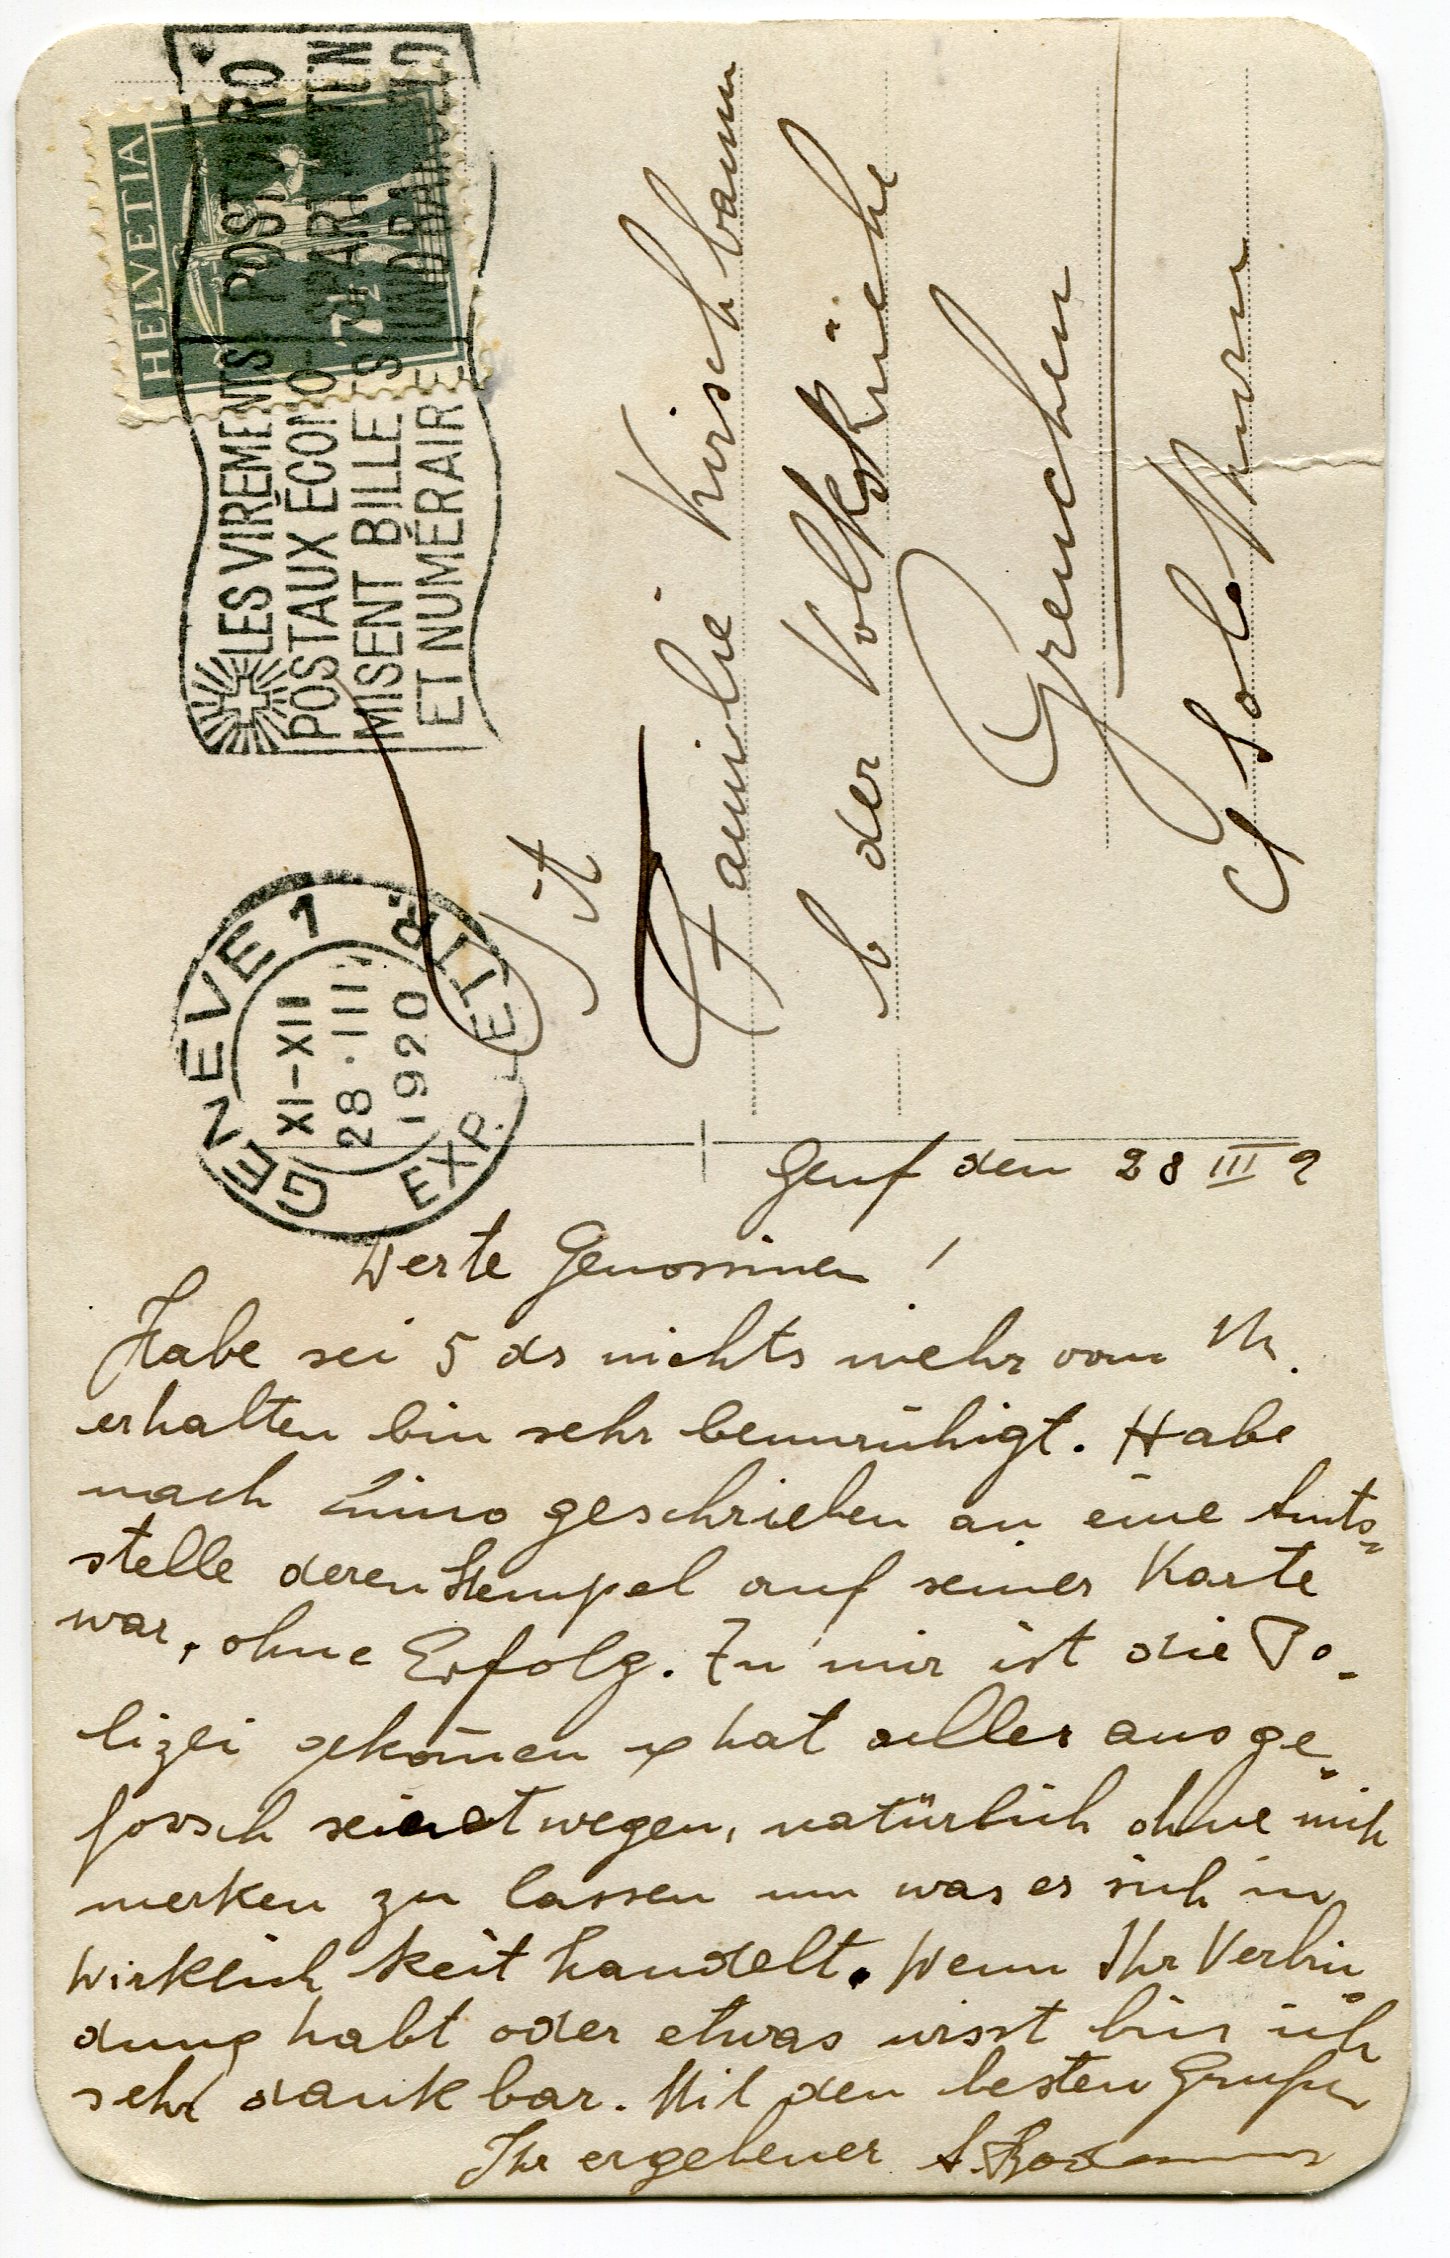 HELVETIA
7½
LES VIREMENTS
POSTAUX ÉCONO-
MISENT BILLETS
ET NUMÉRAIRE
GENÈVE 1
XI-XII
28.III
1920
EXP. LETTR.
Tit
Familie Kirschbaum
b der Volksküche
Grenchen
Solothurn
Genf den 28 III 2
Werte Genossinen!
Habe sei 5 ds nichts mehr vom M.
erhalten bin sehr beunruhigt. Habe
nach Limo geschrieben an eine Amts-
stelle deren Stempel auf seiner Karte
war, ohne Erfolg. Zu mir ist die Po-
lizei gekom̄en & hat alles ausge-
forsch seinetwegen, natürlich ohne mich
merken zu lassen um was es sich in
Wirklichkeit handelt. Wenn Ihr Verbin-
dung habt oder etwas wisst bin ich
sehr dankbar. Mit den besten Grüßen
Ihr ergebener A.